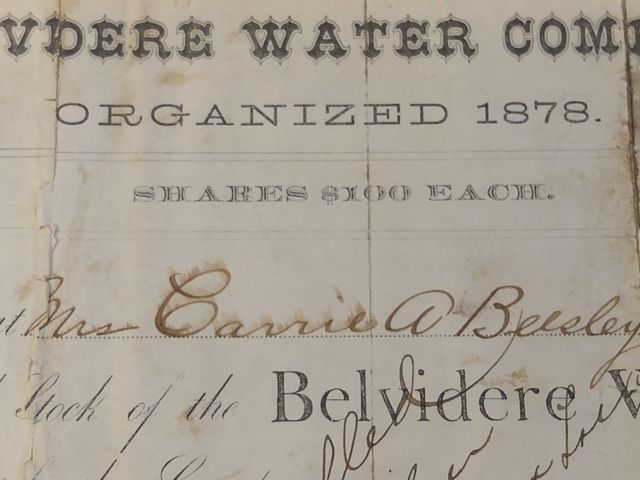 VDERE WATER COM
ORGANIZED 1878.
SHARES $100 EACH.
Mrs Carrie A Beesley
Stock of the Belvidere W